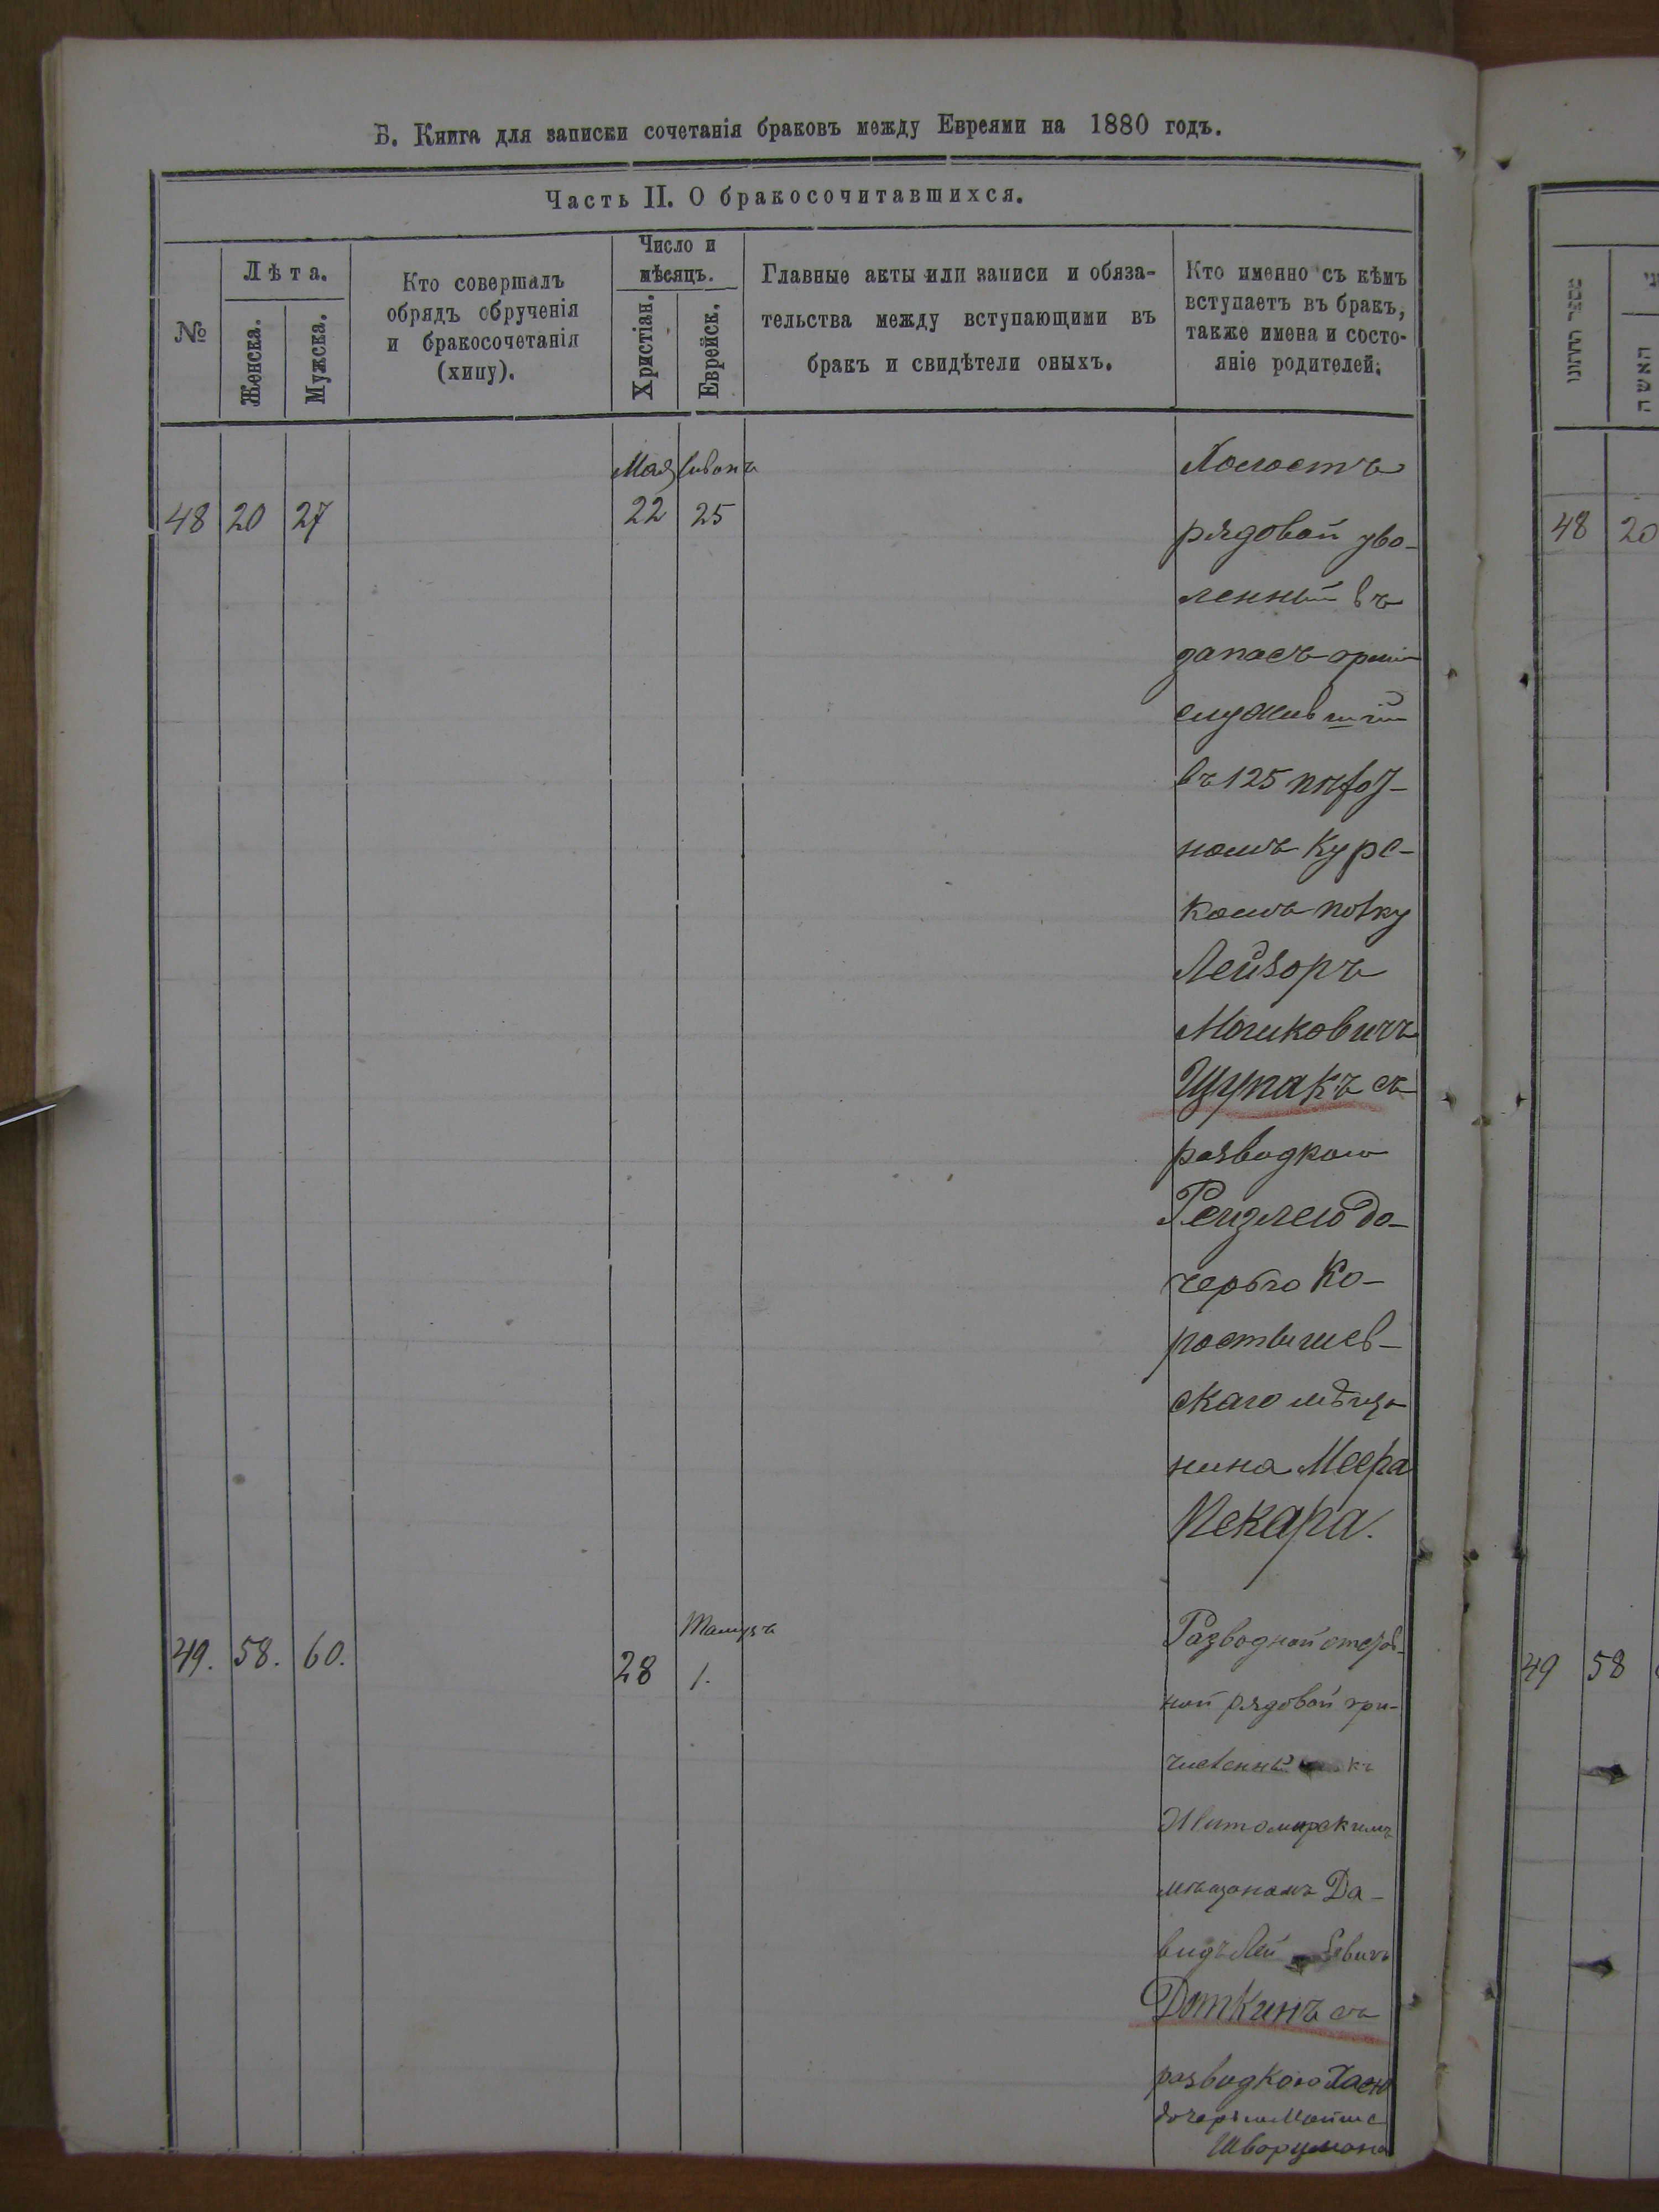 Б. Книга для записки сочетанія браковъ между Евреями на 1880 годъ.
Часть II. О бракосочитавшихся.
№
Лѣта.
Женска.
Мужска.
Кто совершалъ
обрядъ обрученія
и бракосочетанія
(хипу).
Число и
мѣсяцъ.
Христіан.
Еврейск.
Главные акты или записи и обяза-
тельства между вступающими въ
бракъ и свидѣтели оныхъ.
Кто именно съ кѣмъ
вступаетъ въ бракъ,
также имена и состо-
яніе родителей;
Мая Сивонъ
48 20 27 22 25
Холостъ
рядовой уво-
ленный въ
запасъ арміи
служившій
въ 125 пѣхот-
номъ Курс-
комъ полку
Лейзоръ
Мошковичъ
Щупакъ съ
разводкою
Рейзлею до-
черью Ко-
ростышев-
скаго мѣща
нина Меера
Пекара.
Тамузъ
49. 58. 60. 28 1.
Разводной отстав-
ной рядовой при-
численный къ
Житомирскимъ
мѣщанамъ Да-
видъ
Доткинъ съ
разводкою Хаею
дочерью Мойше
Шварцмана
האשה
48 20
49 58